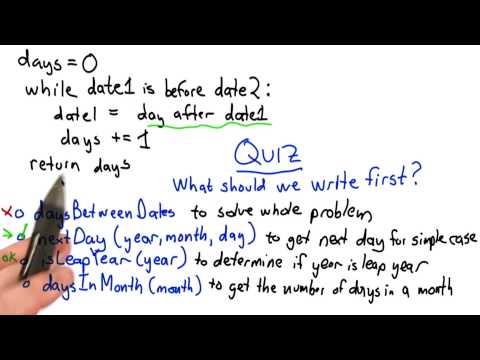 days = 0
while date1 is before date2:
date1 = day after date1
days += 1
return days
QUIZ
What should we write first?
daysBetweenDates to solve whole problem
nextDay (year, month, day) to get next day for simple case
ok isLeapYear (year) to determine if year is leap year
daysInMonth (month) to get the number of days in a month